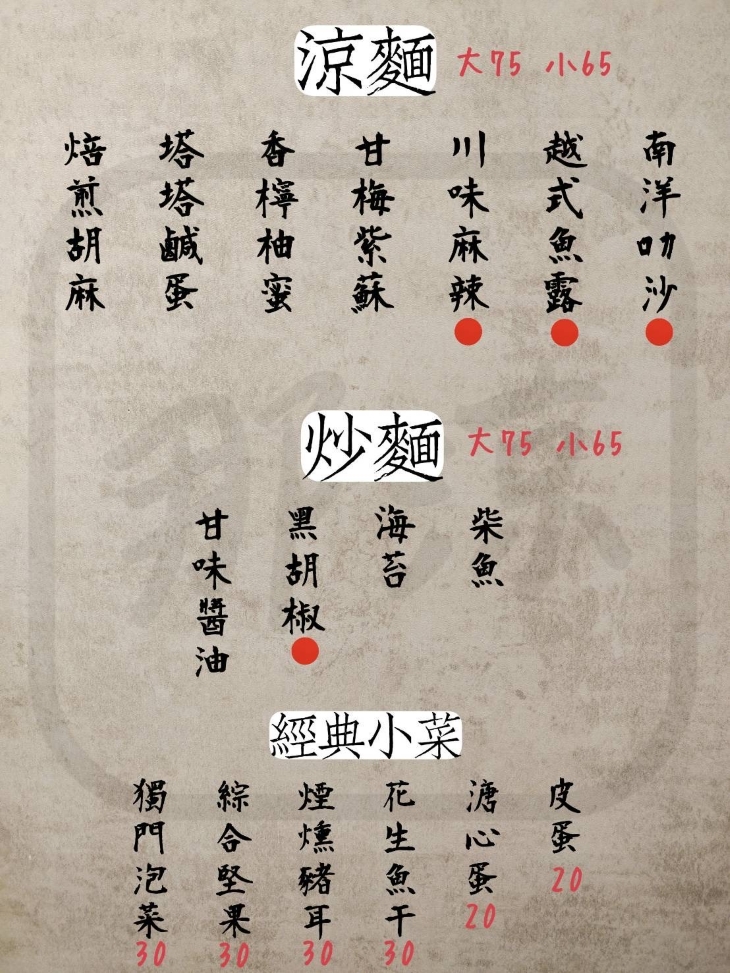 涼麵 大75 小65
南洋叻沙
越式魚露
川味麻辣
甘梅紫蘇
香檸柚蜜
塔塔鹹蛋
焙煎胡麻
炒麵 大75 小65
柴魚
海苔
黑胡椒
甘味醬油
經典小菜
皮蛋 20
溏心蛋 20
花生魚干 30
煙燻豬耳 30
綜合堅果 30
獨門泡菜 30